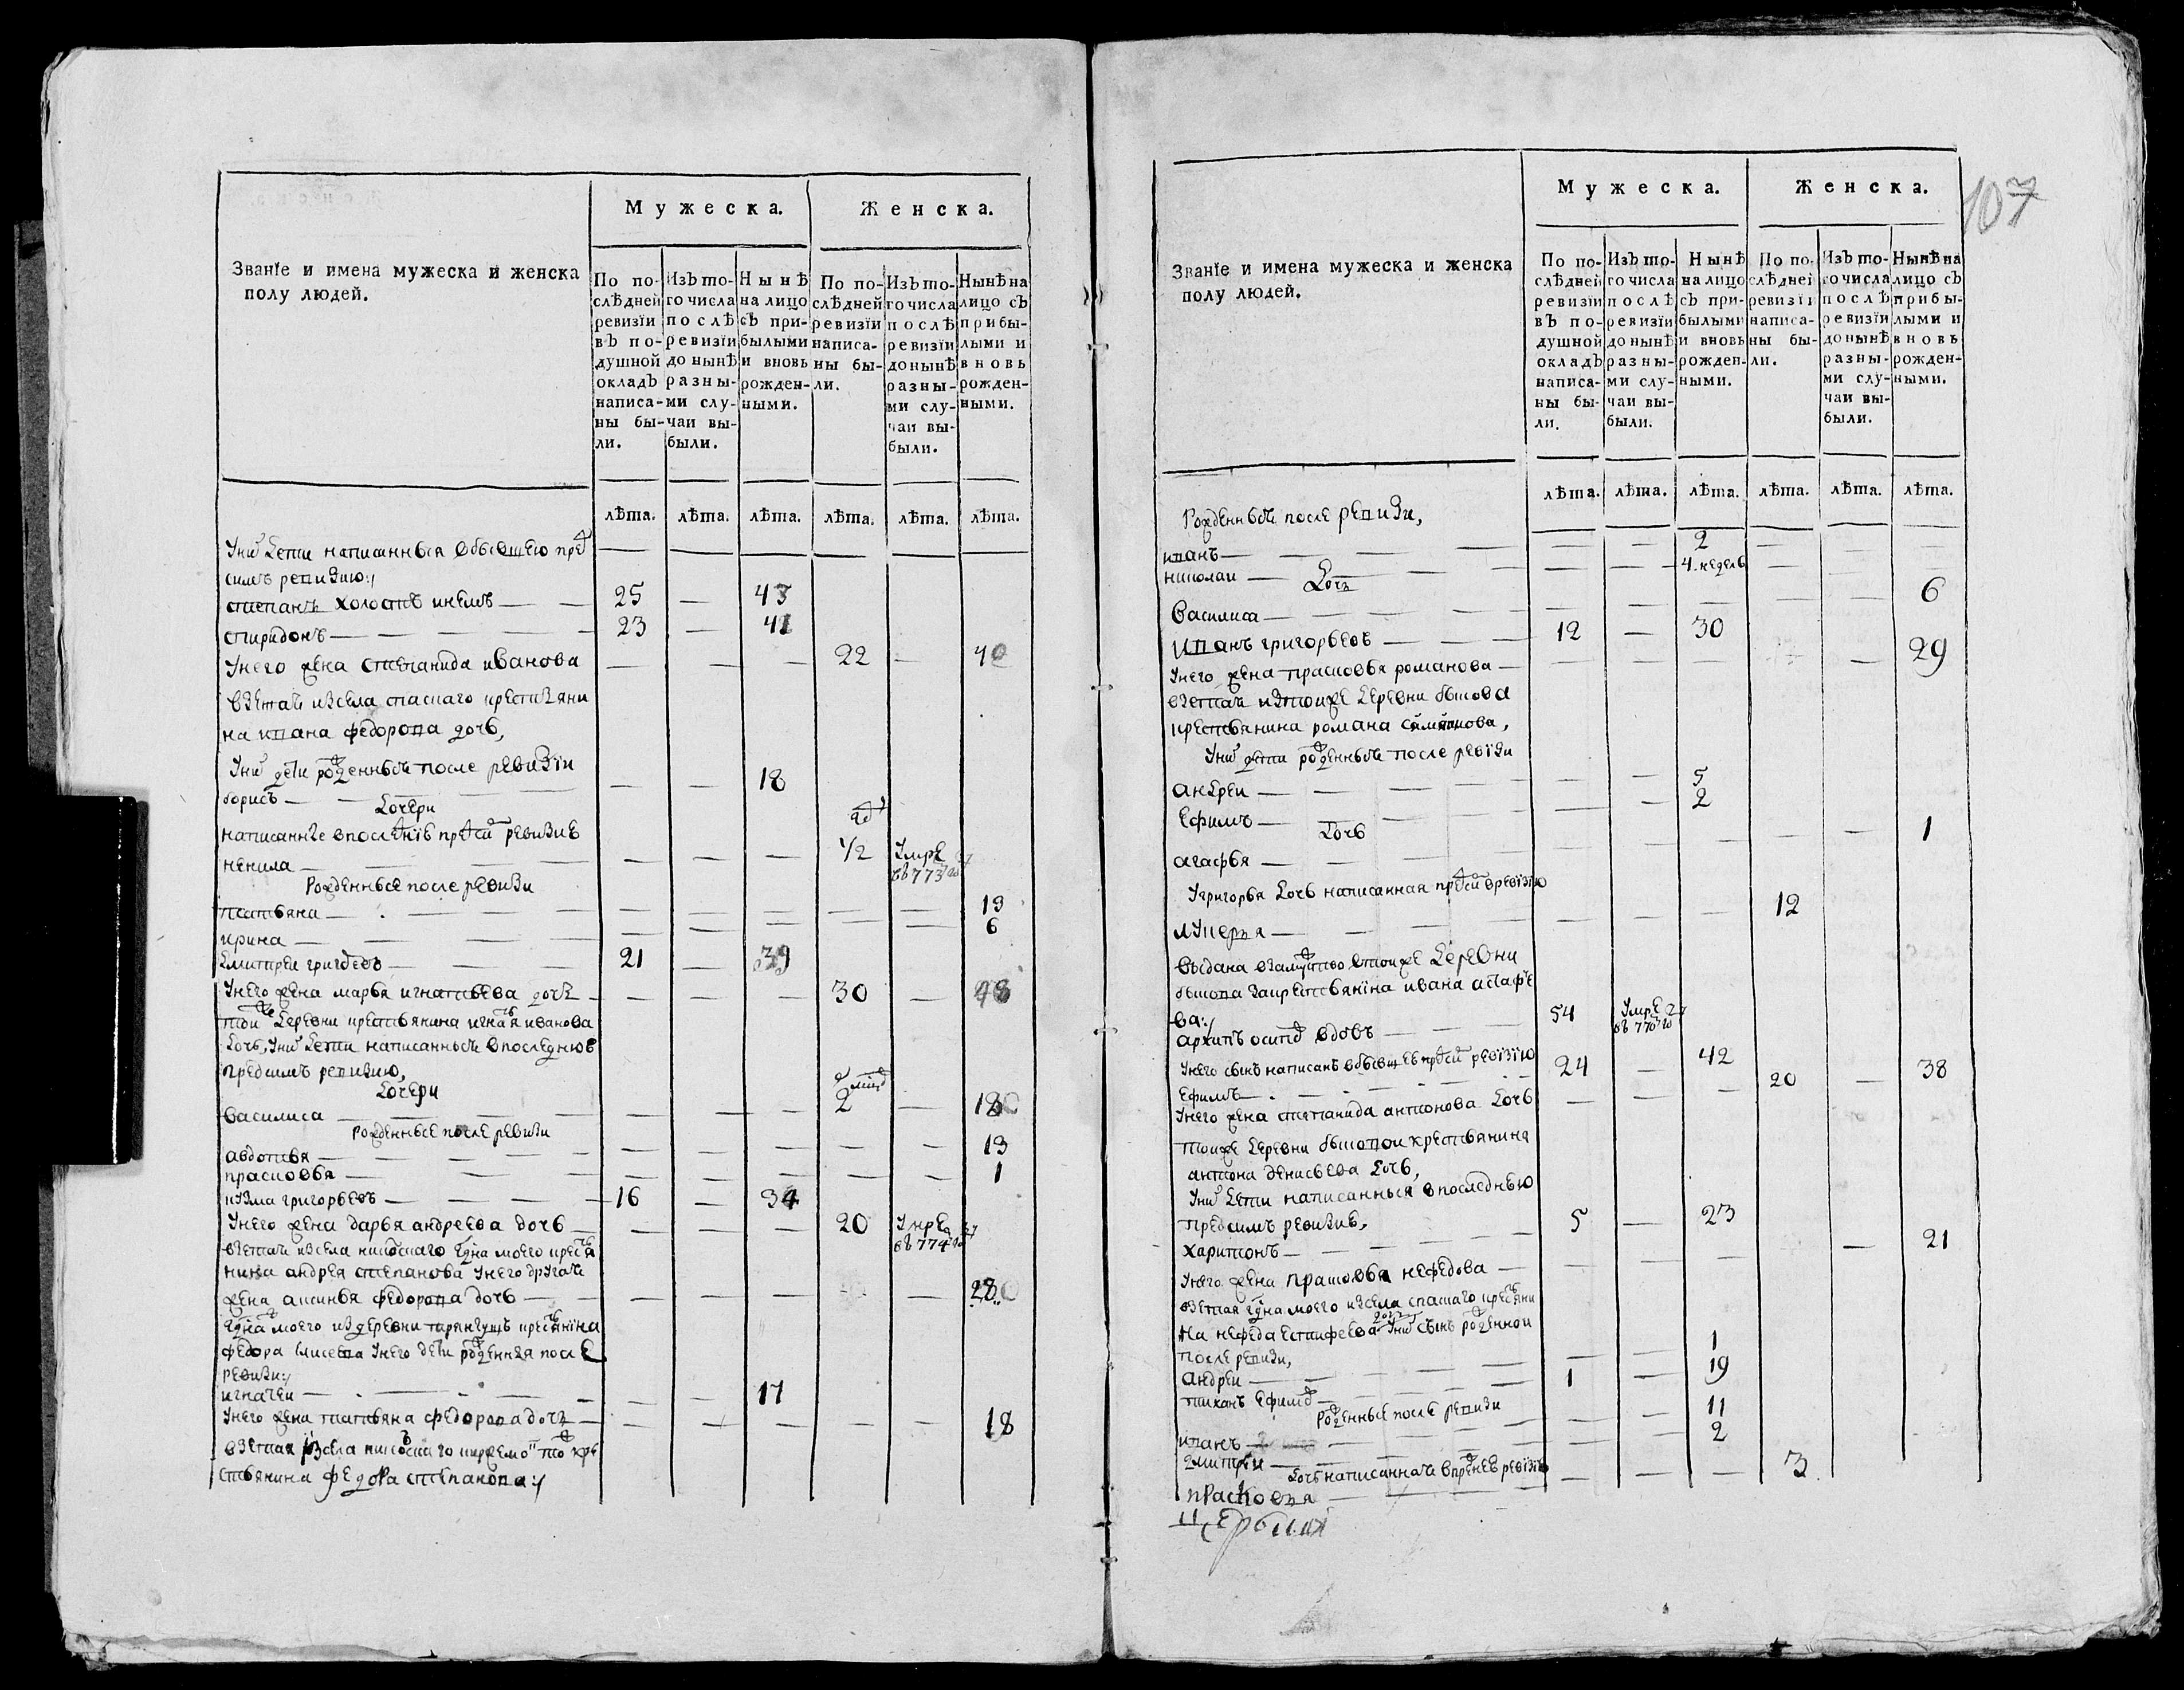 Званїе и имена мужеска и женска
полу людей.
Мужеска.
Женска.
По по-
слѣдней
ревизїи
въ по-
душной
окладъ
написа-
ны бы-
ли.
Изъ то-
го числа
послѣ
ревизїи
до нынѣ
разны-
ми слу-
чаи вы-
были.
Нынѣ
на лицо
съ при-
былыми
и вновь
рожден-
ными.
По по-
слѣдней
ревизїи
написа-
ны бы-
ли.
Изъ то-
го числа
послѣ
ревизїи
до нынѣ
разны-
ми слу-
чаи вы-
были.
Нынѣ на
лицо съ
прибы-
лыми и
вновь
рожден-
ными.
лѣта. лѣта. лѣта. лѣта. лѣта. лѣта.
У них дети написанныя в бывшею пред
симъ ревизию:/
степанъ холостъ и немъ — 25 — 43
спиридонъ — 23 — 41
У него жена степанида иванова — 22 — 40
взетай из села спаскаго крестьяни
на ивана федорова дочь,
У них дети рожденныи после ревизiи
борисъ — 18
дочери
написанные в последние пред сим ревизие
ненила — 1/2 умре въ 773 го
Рожденные после ревизи
татьяна — 13
ирина — 6
дмитреи григорьев — 21 — 39
У него жена марья игнатьева дочь — 30 — 48
той же деревни крестьянина игнатья иванова
дочь, у них дети написанныи в последнюю
пред симъ ревизию,
дочери
василиса — 2 — 18
Рожденные после ревизи
авдотья — 13
прасковья — 1
кузма григорьевъ — 16 — 34
У него жена дарья андреева дочь — 20 умре въ 774 го
взетаи из села никольскаго гдна моего крестья
нина андрея степанова у него другаи
жена аксинья федорова дочь — 28
гдна моего из деревни крестьянина
федора елисеева у него дети рожденныя после
ревизи:/
игнатеи — 17
У него жена татьяна федорова дочь — 18
взетая из села никольскаго кре
стьянина федора степанова:/
107
Званїе и имена мужеска и женска
полу людей.
Мужеска.
Женска.
По по-
слѣдней
ревизїи
въ по-
душной
окладъ
написа-
ны бы-
ли.
Изъ то-
го числа
послѣ
ревизїи
до нынѣ
разны-
ми слу-
чаи вы-
были.
Нынѣ
на лицо
съ при-
былыми
и вновь
рожден-
ными.
По по-
слѣдней
ревизїи
написа-
ны бы-
ли.
Изъ то-
го числа
послѣ
ревизїи
до нынѣ
разны-
ми слу-
чаи вы-
были.
Нынѣ на
лицо съ
прибы-
лыми и
вновь
рожден-
ными.
лѣта. лѣта. лѣта. лѣта. лѣта. лѣта.
Рожденныи после ревизи,
иванъ — 2
николаи — 4. недель
дочь
василиса — 6
иванъ григорьевъ — 12 — 30
У него жена прасковья романова — 29
взетаи из тои же деревни бытова
крестьянина романа
У них дети рожденныи после ревiзи
андреи — 5
Ефимъ — 2
дочь
агафья — 1
У григорья дочь написанная пред сим в ревiзию
лукерья — 12
выдана в замужство в тои же деревни
бытова за крестьянина ивана астафе
ва:/
архипъ осипов вдовъ — 54 умре въ 770 го
У него сынъ написанъ в бывшее пред сим ревiзiю
Ефимъ — 24 — 42
У него жена степанида антонова дочь 20 — 38
тои же деревни бытовои крестьянина
антона денисьева дочь,
У них дети написанныя в последнью
пред симъ ревизию,
харитонъ — 5 — 23
У него жена прасковья нефедова — 21
взетая гдна моего из села спаскаго крестьяни
на нефеда естифеева дочь у них сынъ рожденнои
после ревизи,
андреи — 1
тихонъ Ефимов — 1 — 19
Рожденные после ревизи
иванъ — 11
дмитреи — 2
дочь написаннаи в прежнее ревiзию
прасковья — 3